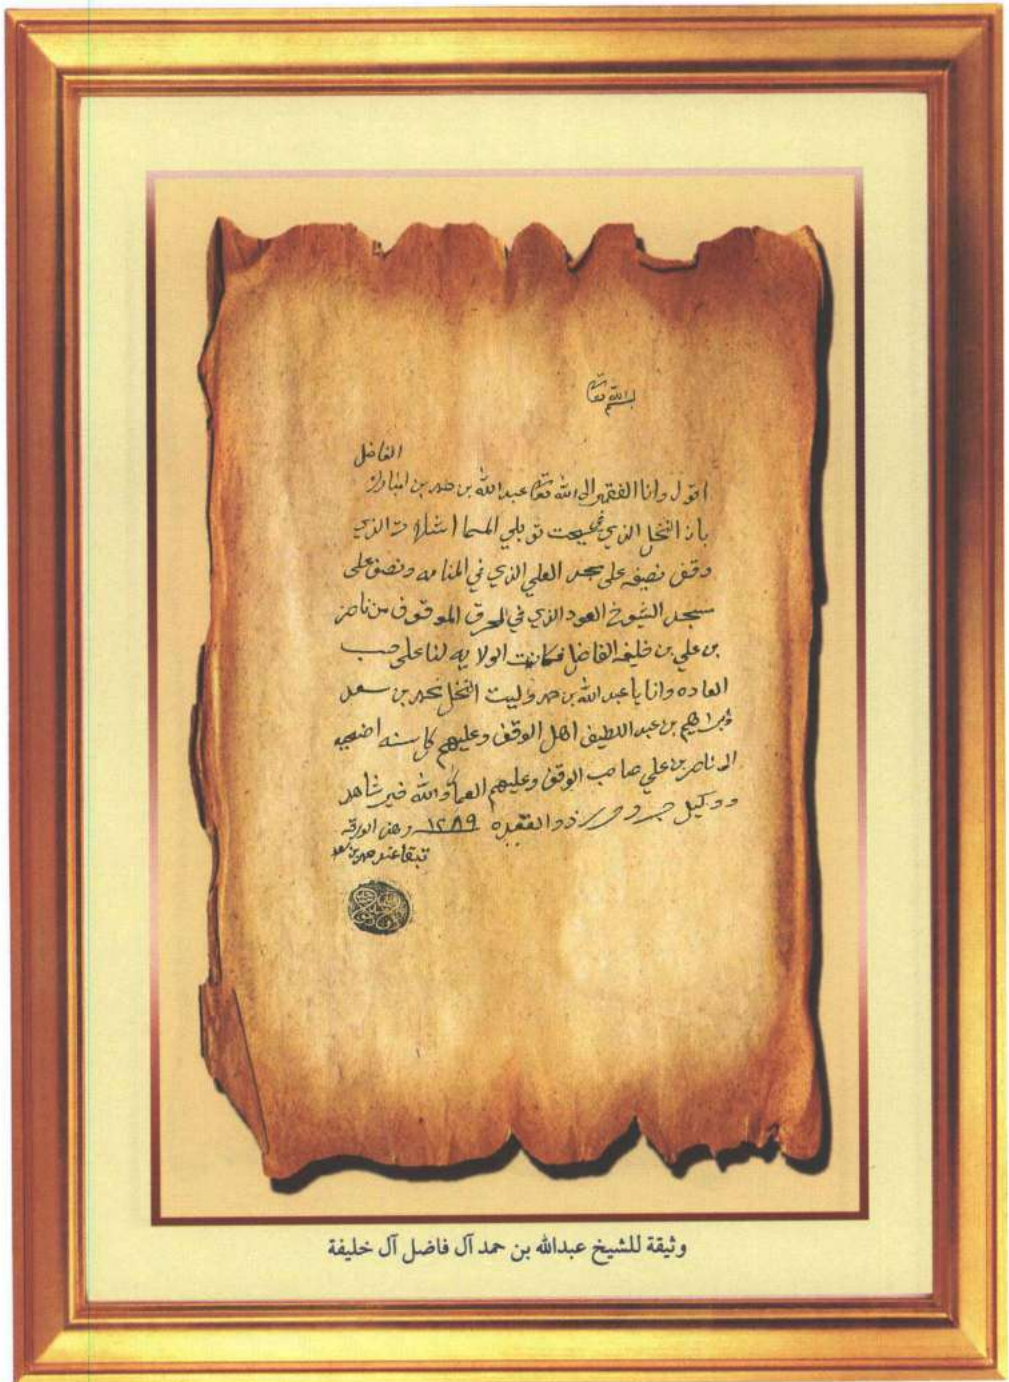 بسم الله تعالى
الفاضل
اقول وانا الفقير الى الله تعالى عبدالله بن حمد بن
بان النخل الذي في توبلي المسما الذي
وقف نصيفه على مسجد العلي الذي في المنامه ونصف على
مسجد الشيوخ العود الذي في المحرق الموقوف من ناصر
بن علي بن خليفه الفاضل فكانت الولايه لنا على حسب
العاده وانا يا عبدالله بن حمد وليت النخل محمد بن سعد
وابراهيم بن عبد اللطيف اهل الوقف وعليهم كل سنه اضحيه
الى ناصر بن علي صاحب الوقف وعليهم العماد والله خير شاهد
ووكيل ذو القعده ١٢٨٩ وهذه الورقه
تبقا عند حمد بن سعد
وثيقة للشيخ عبدالله بن حمد آل فاضل آل خليفة